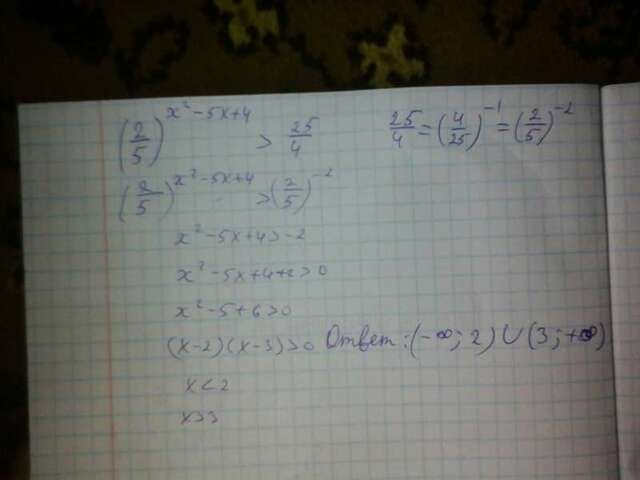 (2/5)^(x²-5x+4) > 25/4
25/4 = (4/25)^(-1) = (2/5)^(-2)
(2/5)^(x²-5x+4) > (2/5)^(-2)
x²-5x+4>-2
x²-5x+4+2>0
x²-5+6>0
(x-2)(x-3)>0 Ответ: (-∞; 2) ∪ (3; +∞)
x<2
x>3